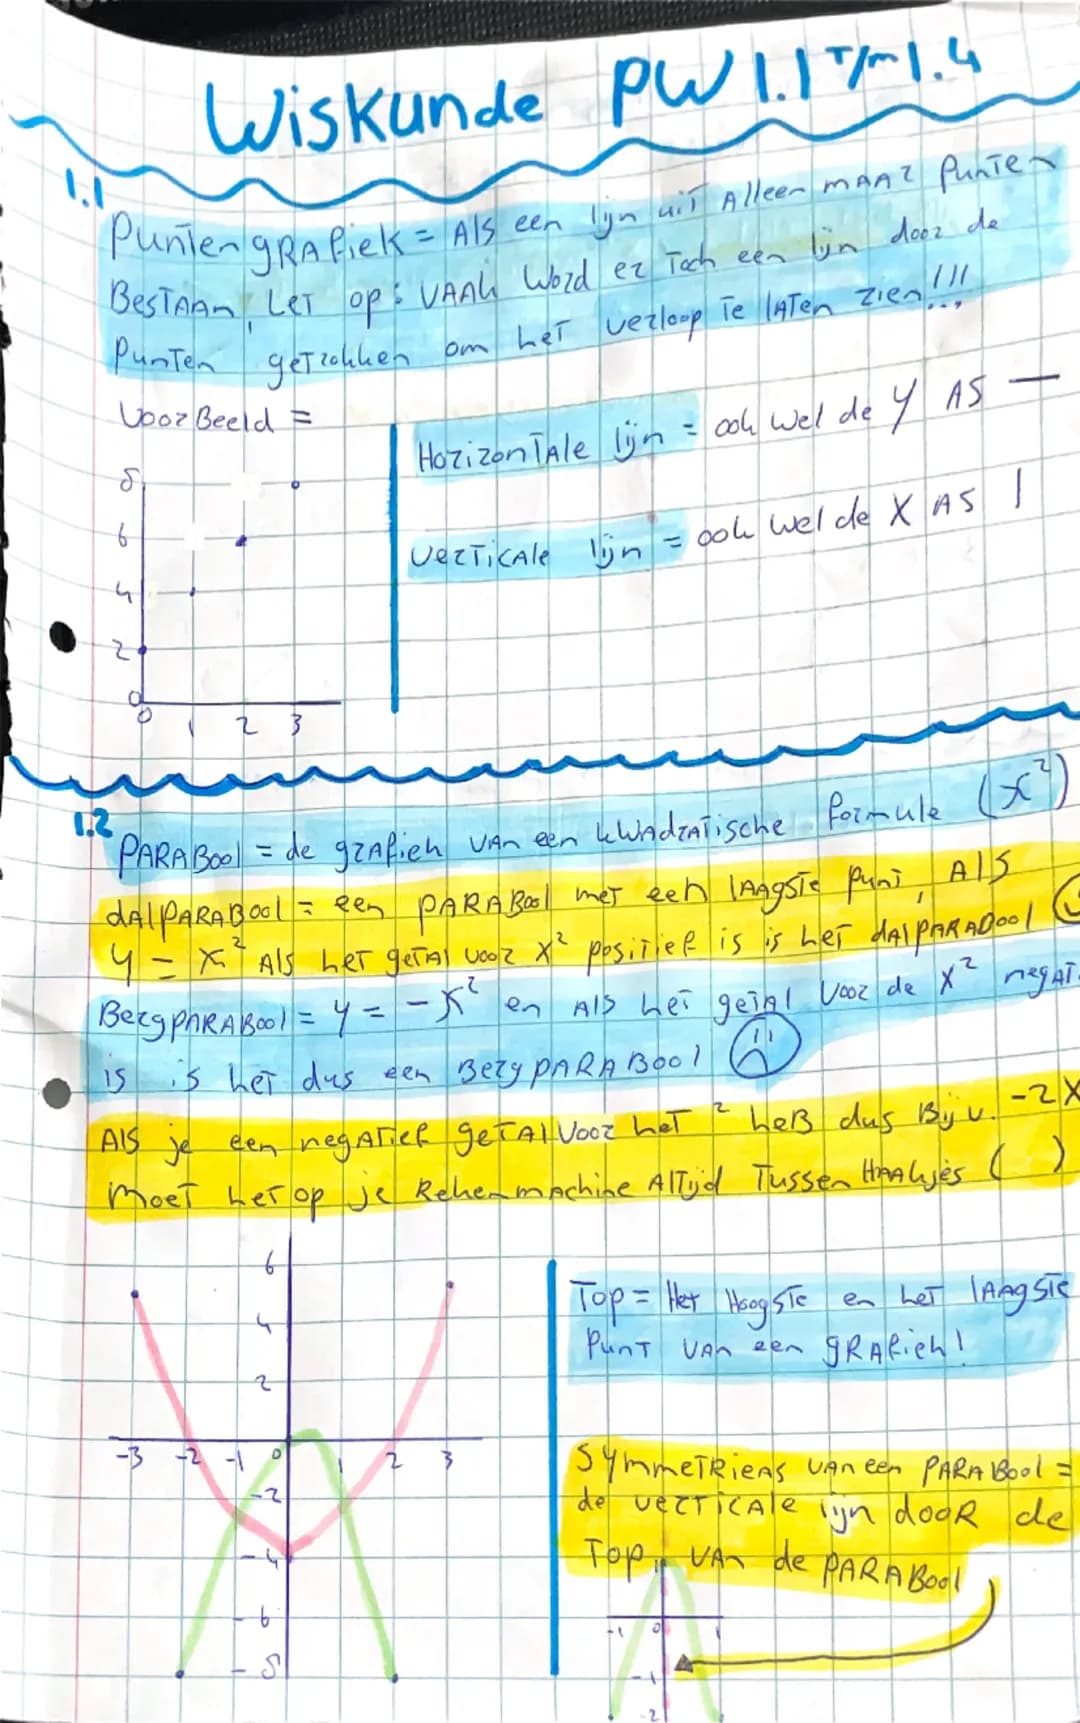 Wiskunde PW 1.1 T/m 1.4
1.1
PuntengRAfiek = Als een lijn uit Alleen maar punten
BesTAAn, Let op: VAAk Word er Toch een lijn door de
Punten getrokken om het verloop Te lATen zien!!!
VoorBeeld =
8
6
4
2
0
0 1 2 3
HorizonTAle lijn = ook wel de Y AS —
VerTicAle lijn = ook wel de X AS |
1.2
PARABool = de grafiek VAn een kwadrATische formule (x²)
dAlPARABool = een PARABool met een lAAgste punt, Als
y = x² Als het getal voor x² positief is is het dAlPARABool
BergPARABool = y = -x² en Als het getal voor de x² negAT
is is het dus een BergPARABool
Als je een negATief geTAl Voor het ² heB dus Bijv. -2x
moet het op je Rekenmachine AlTijd Tussen HAAkjes ( )
6
4
2
-3 -2 -1 0 1 2 3
-2
-4
-6
-8
Top = Het Hoogste en het lAAgste
Punt VAn een gRAfiek!
SymmeTRieAs VAn een PARABool =
de verTicAle lijn dooR de
Top VAn de PARABool
-1 0 1
-1
-2